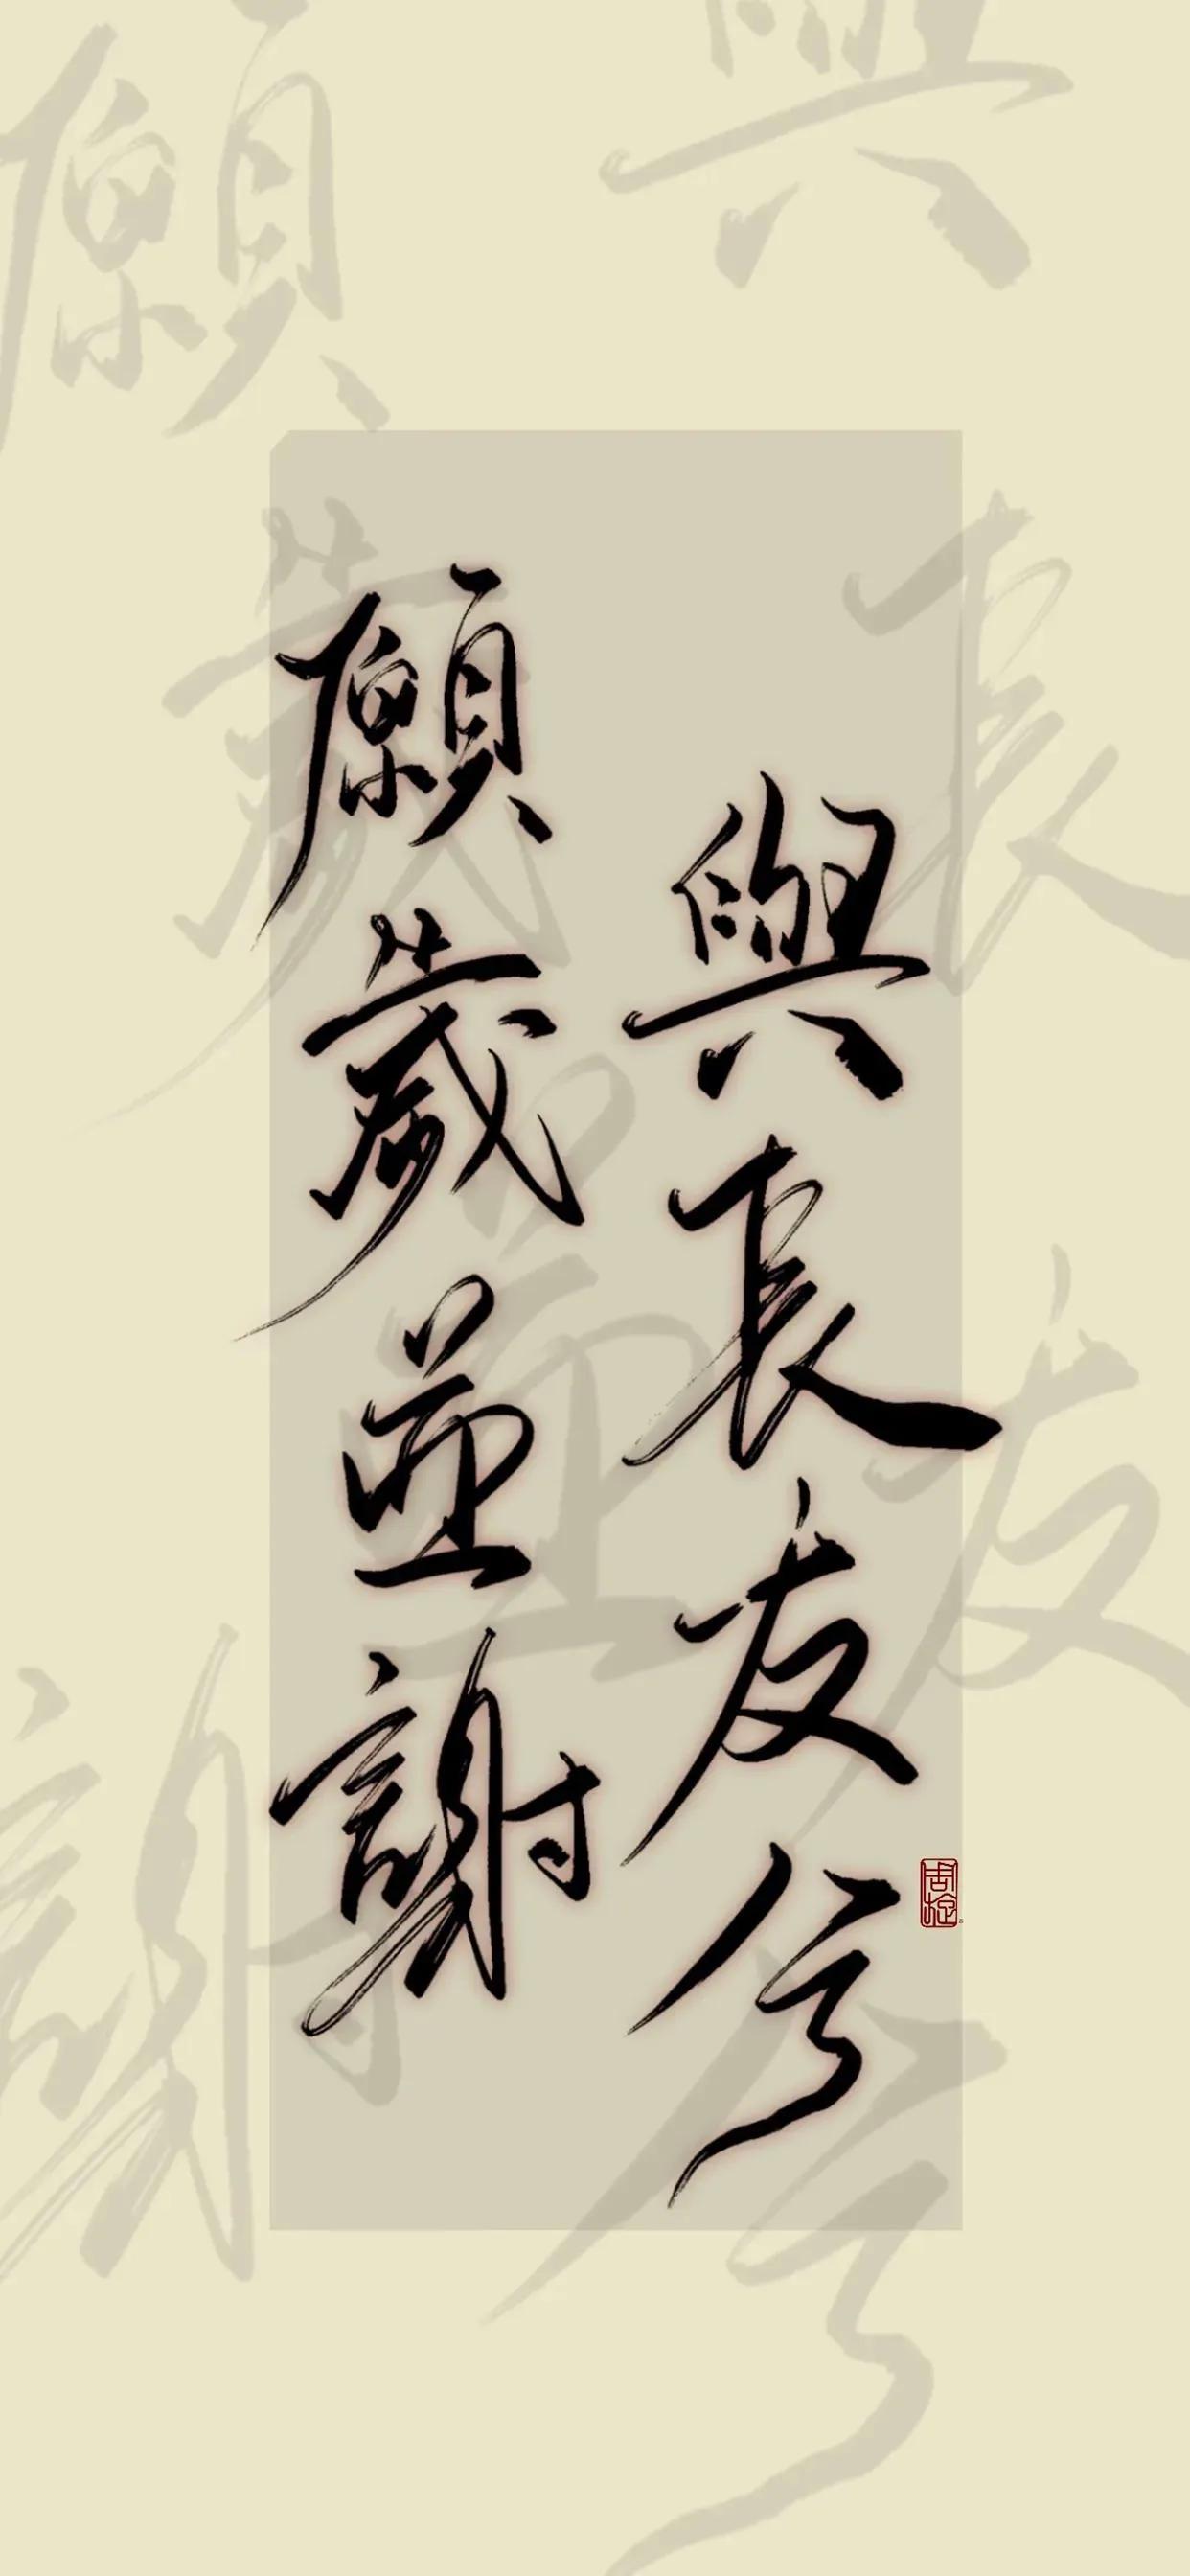 願歲並謝
與長友兮